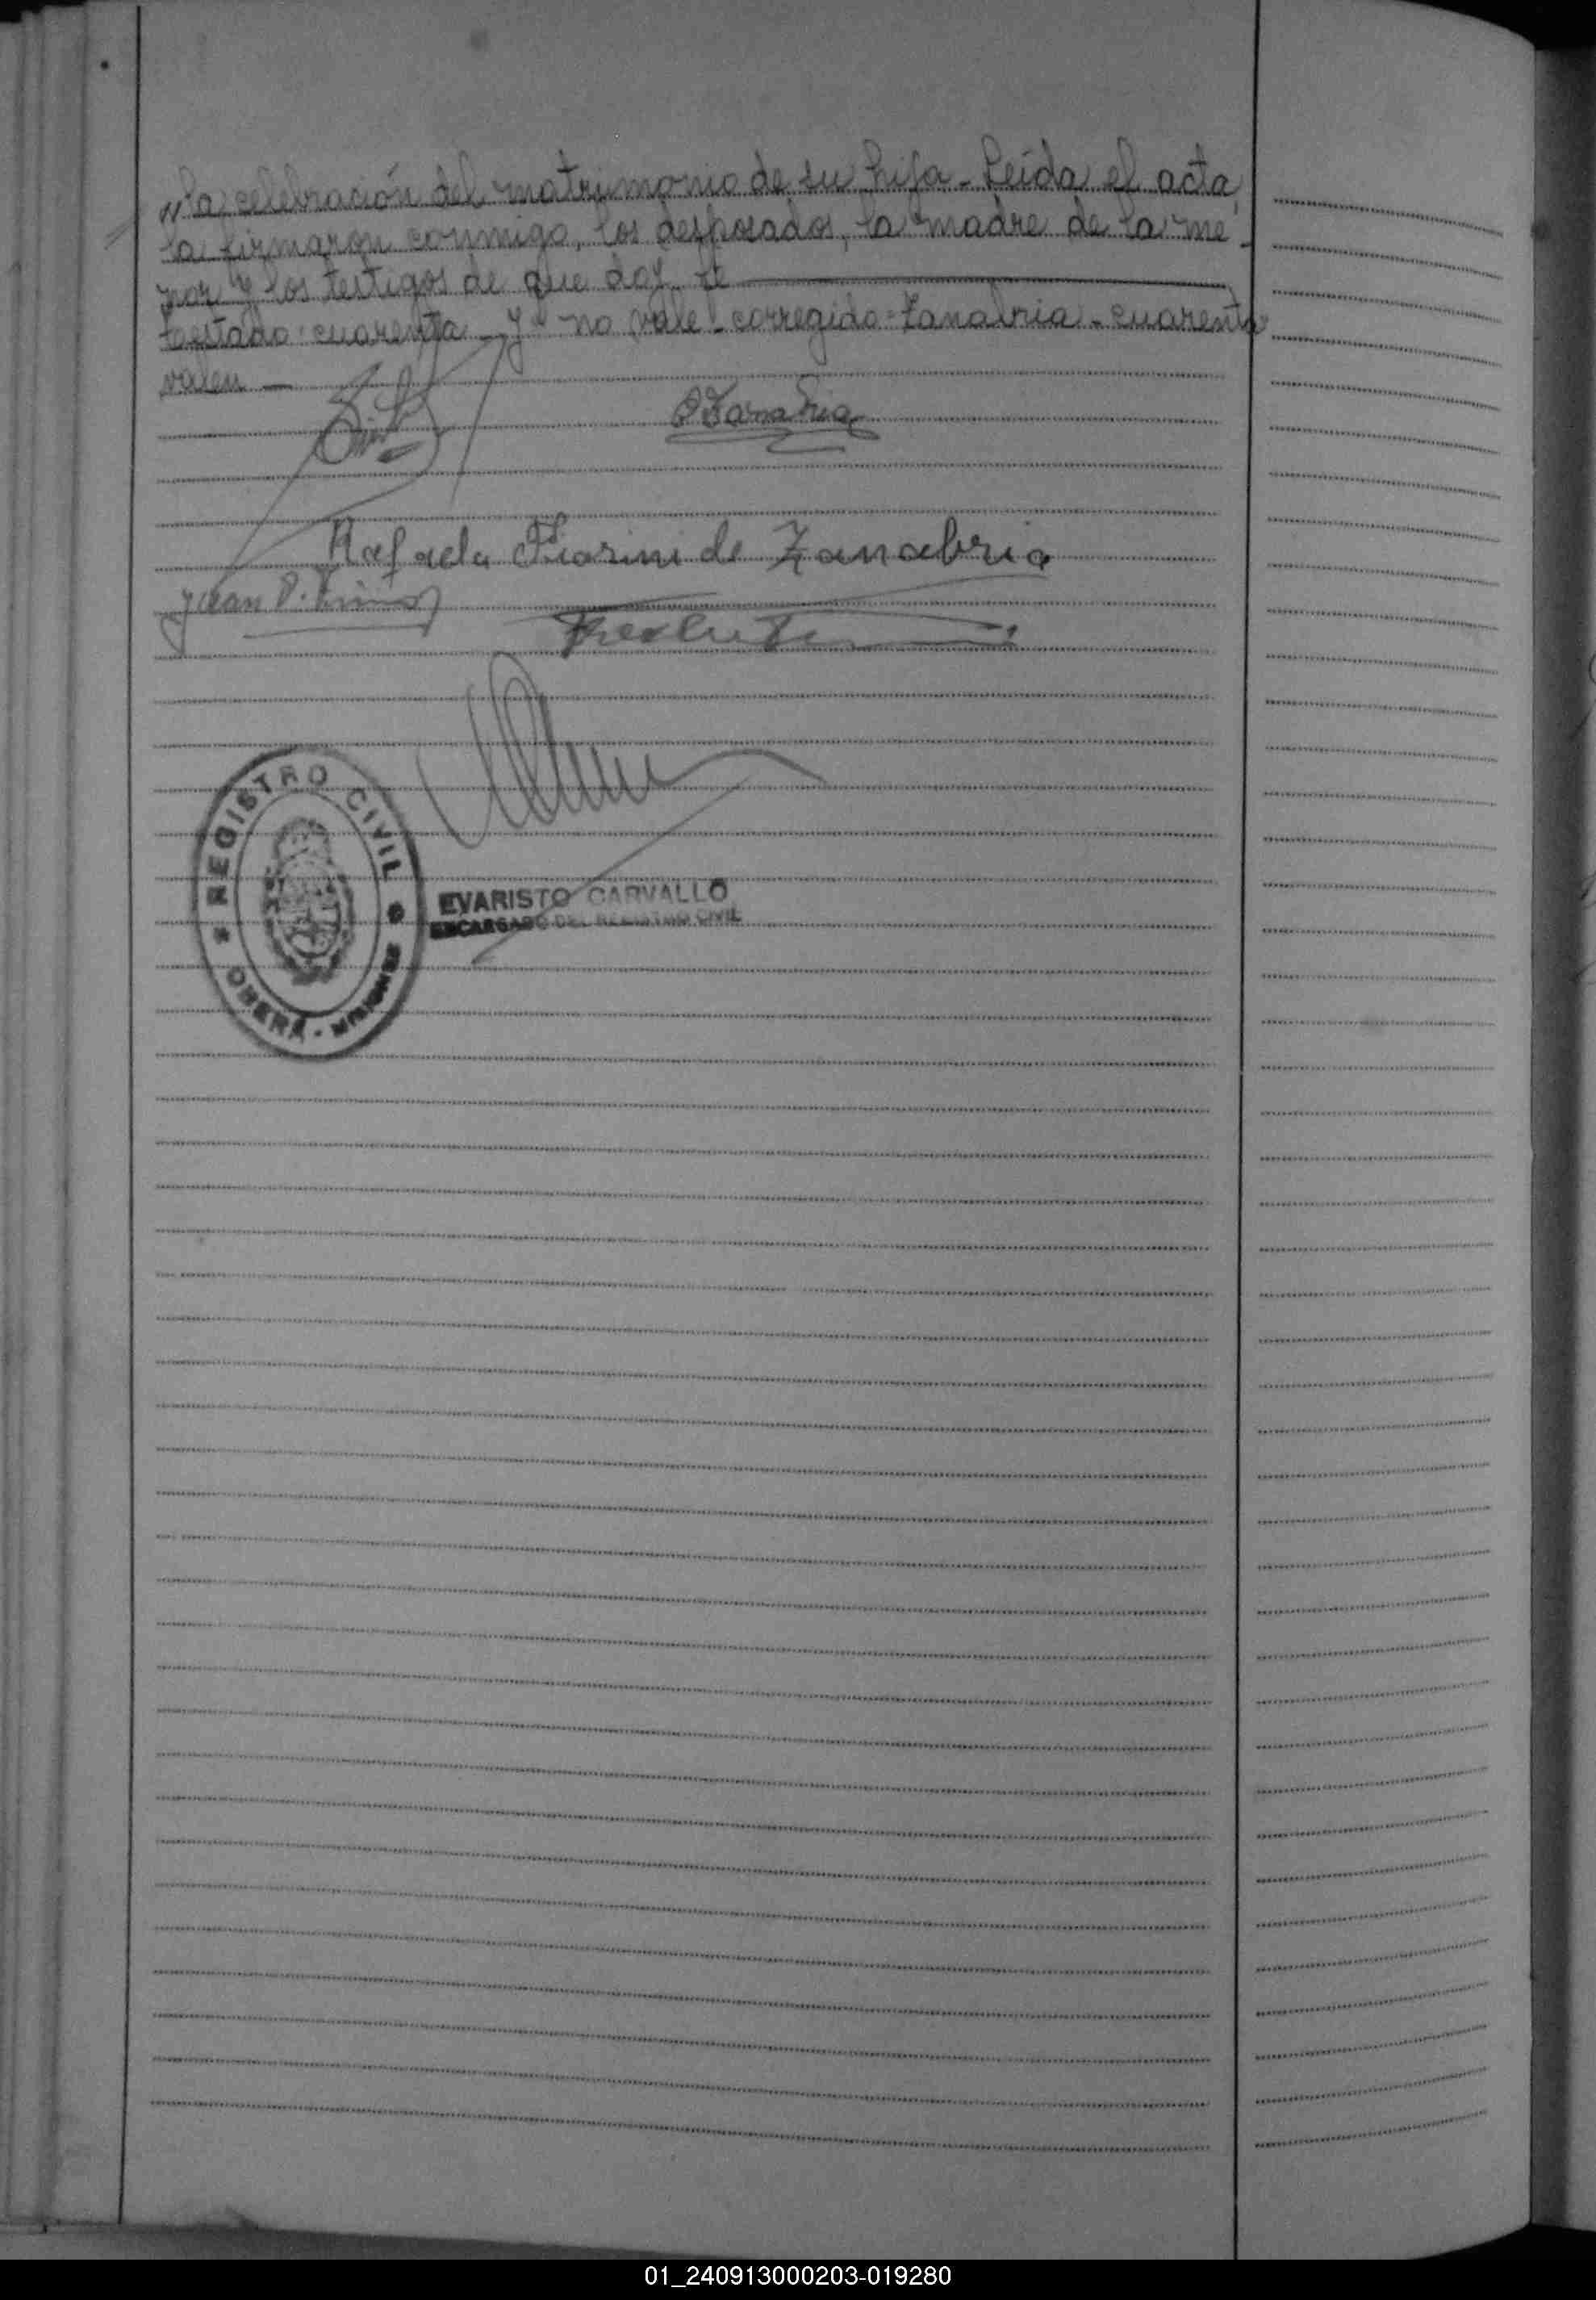 "la celebración del matrimonio de su hija - Leída el acta,
la firmaron conmigo, los desposados, la madre de la me-
nor y los testigos de que doy fe
testado: cuarenta - y - no vale - corregido - Zanabria - cuarenta
valen -
Zanabria
Rafaela de Zanabria
Juan P.
REGISTRO CIVIL
OBERÁ - MISIONES
EVARISTO CARVALLO
ENCARGADO DEL REGISTRO CIVIL
01_240913000203-019280